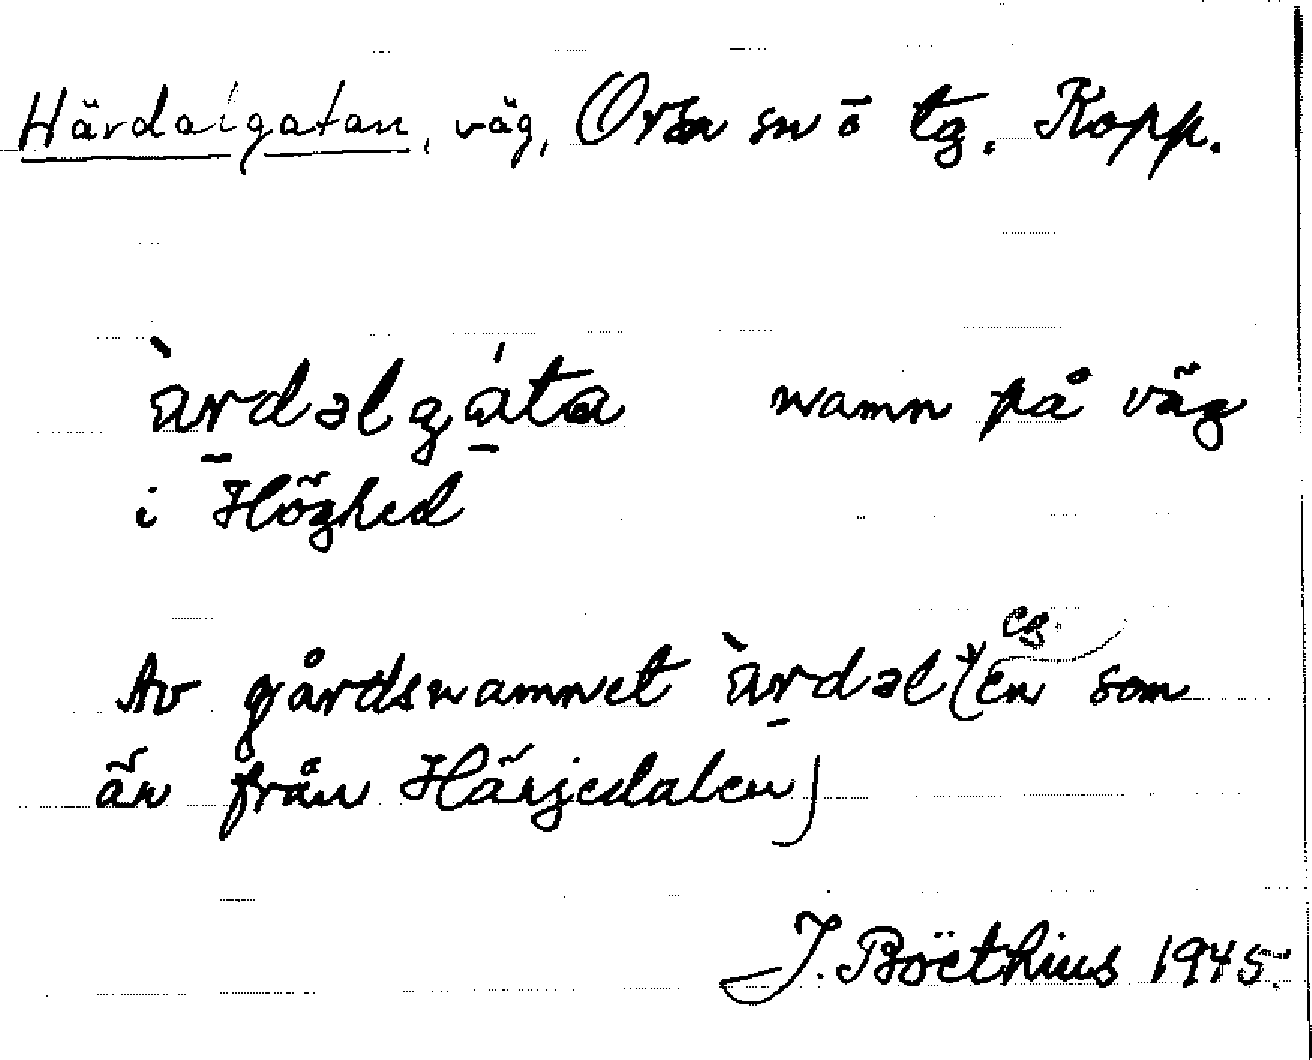 Härdalgatan, väg, Orsa sn o tg. Kopp.
àrdəlgáta namn på väg
i Höghed
Av gårdsnamnet àrdəl (en som
är från Härjedalen)
J. Boëthius 1945.